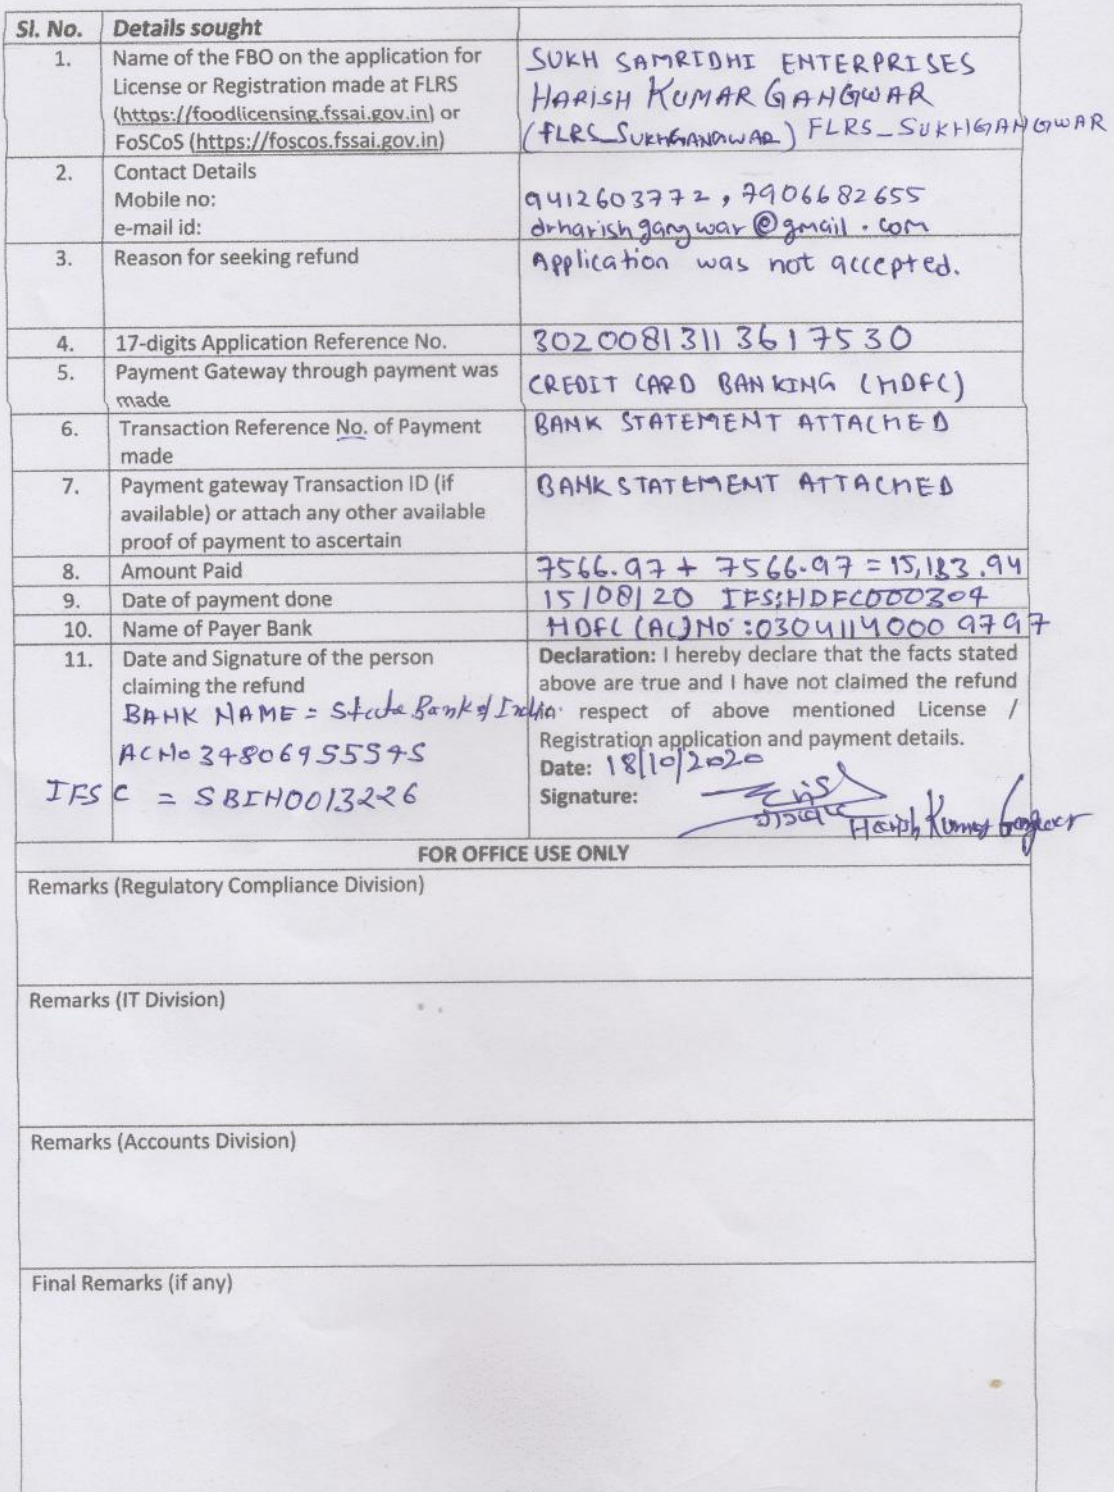 Sl. No. Details sought
1. Name of the FBO on the application for
License or Registration made at FLRS
(https://foodlicensing.fssai.gov.in) or
FoSCoS (https://foscos.fssai.gov.in)
SUKH SAMRIDHI ENTERPRISES
HARISH KUMAR GANGWAR
(FLRS_SUKHGANGWAR) FLRS_SUKHGANGWAR
2. Contact Details
Mobile no: 9412603772, 7906682655
e-mail id: drharishgangwar@gmail.com
3. Reason for seeking refund Application was not accepted.
4. 17-digits Application Reference No. 30200813113617530
5. Payment Gateway through payment was
made
CREDIT CARD BANKING (HDFC)
6. Transaction Reference No. of Payment
made
BANK STATEMENT ATTACHED
7. Payment gateway Transaction ID (if
available) or attach any other available
proof of payment to ascertain
BANK STATEMENT ATTACHED
8. Amount Paid 7566.97 + 7566.97 = 15,133.94
9. Date of payment done 15/08/20 IFS:HDFC0000304
10. Name of Payer Bank HDFC (AC)NO:03041140009797
11. Date and Signature of the person
claiming the refund
BANK NAME = State Bank of India
AC No 34806955545
IFSC = SBIN0013226
Declaration: I hereby declare that the facts stated
above are true and I have not claimed the refund
in respect of above mentioned License /
Registration application and payment details.
Date: 18/10/2020
Signature:
Harish Kumar Gangwar
FOR OFFICE USE ONLY
Remarks (Regulatory Compliance Division)
Remarks (IT Division)
Remarks (Accounts Division)
Final Remarks (if any)